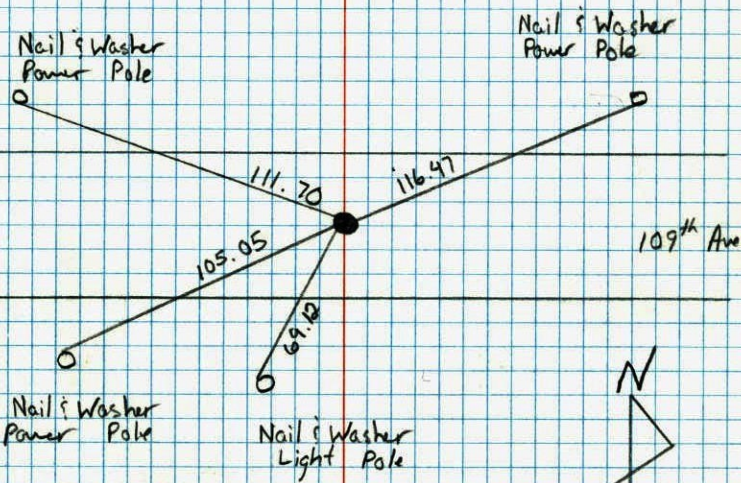 Nail & Washer
Power Pole
Nail & Washer
Power Pole
111.70
116.47
109th Ave
105.05
69.12
N
Nail & Washer
Power Pole
Nail & Washer
Light Pole